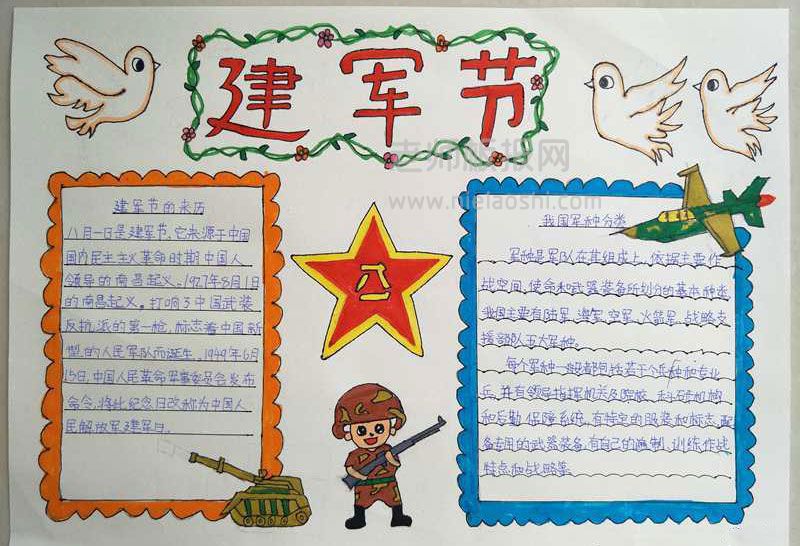 建军节
老师板报网
www.nielaoshi.com
建军节的来历
八月一日是建军节、它来源于中国
国内民主主义革命时期中国人
领导的南昌起义。1927年8月1日
的南昌起义。打响了中国武装
反抗派的第一枪,标志着中国新
型的人民军队而诞生。1949年6月
15日,中国人民革命军事委员会发布
命令,将此纪念日改称为中国人
民解放军建军日。
八一
我国军种分类
军种是军队在其组成上,依据主要作
战空间,使命和武器装备所划分的基本种类
我国主要有陆军、海军、空军、火箭军、战略支
援部队五大军种。
每个军种一般都包括若干个兵种和专业
兵,并有领导指挥机关及院校、科研机构
和后勤保障系统,有特定的服装和标志,配
备专用的武器装备,有自己的编制、训练、作战
特点和战略等